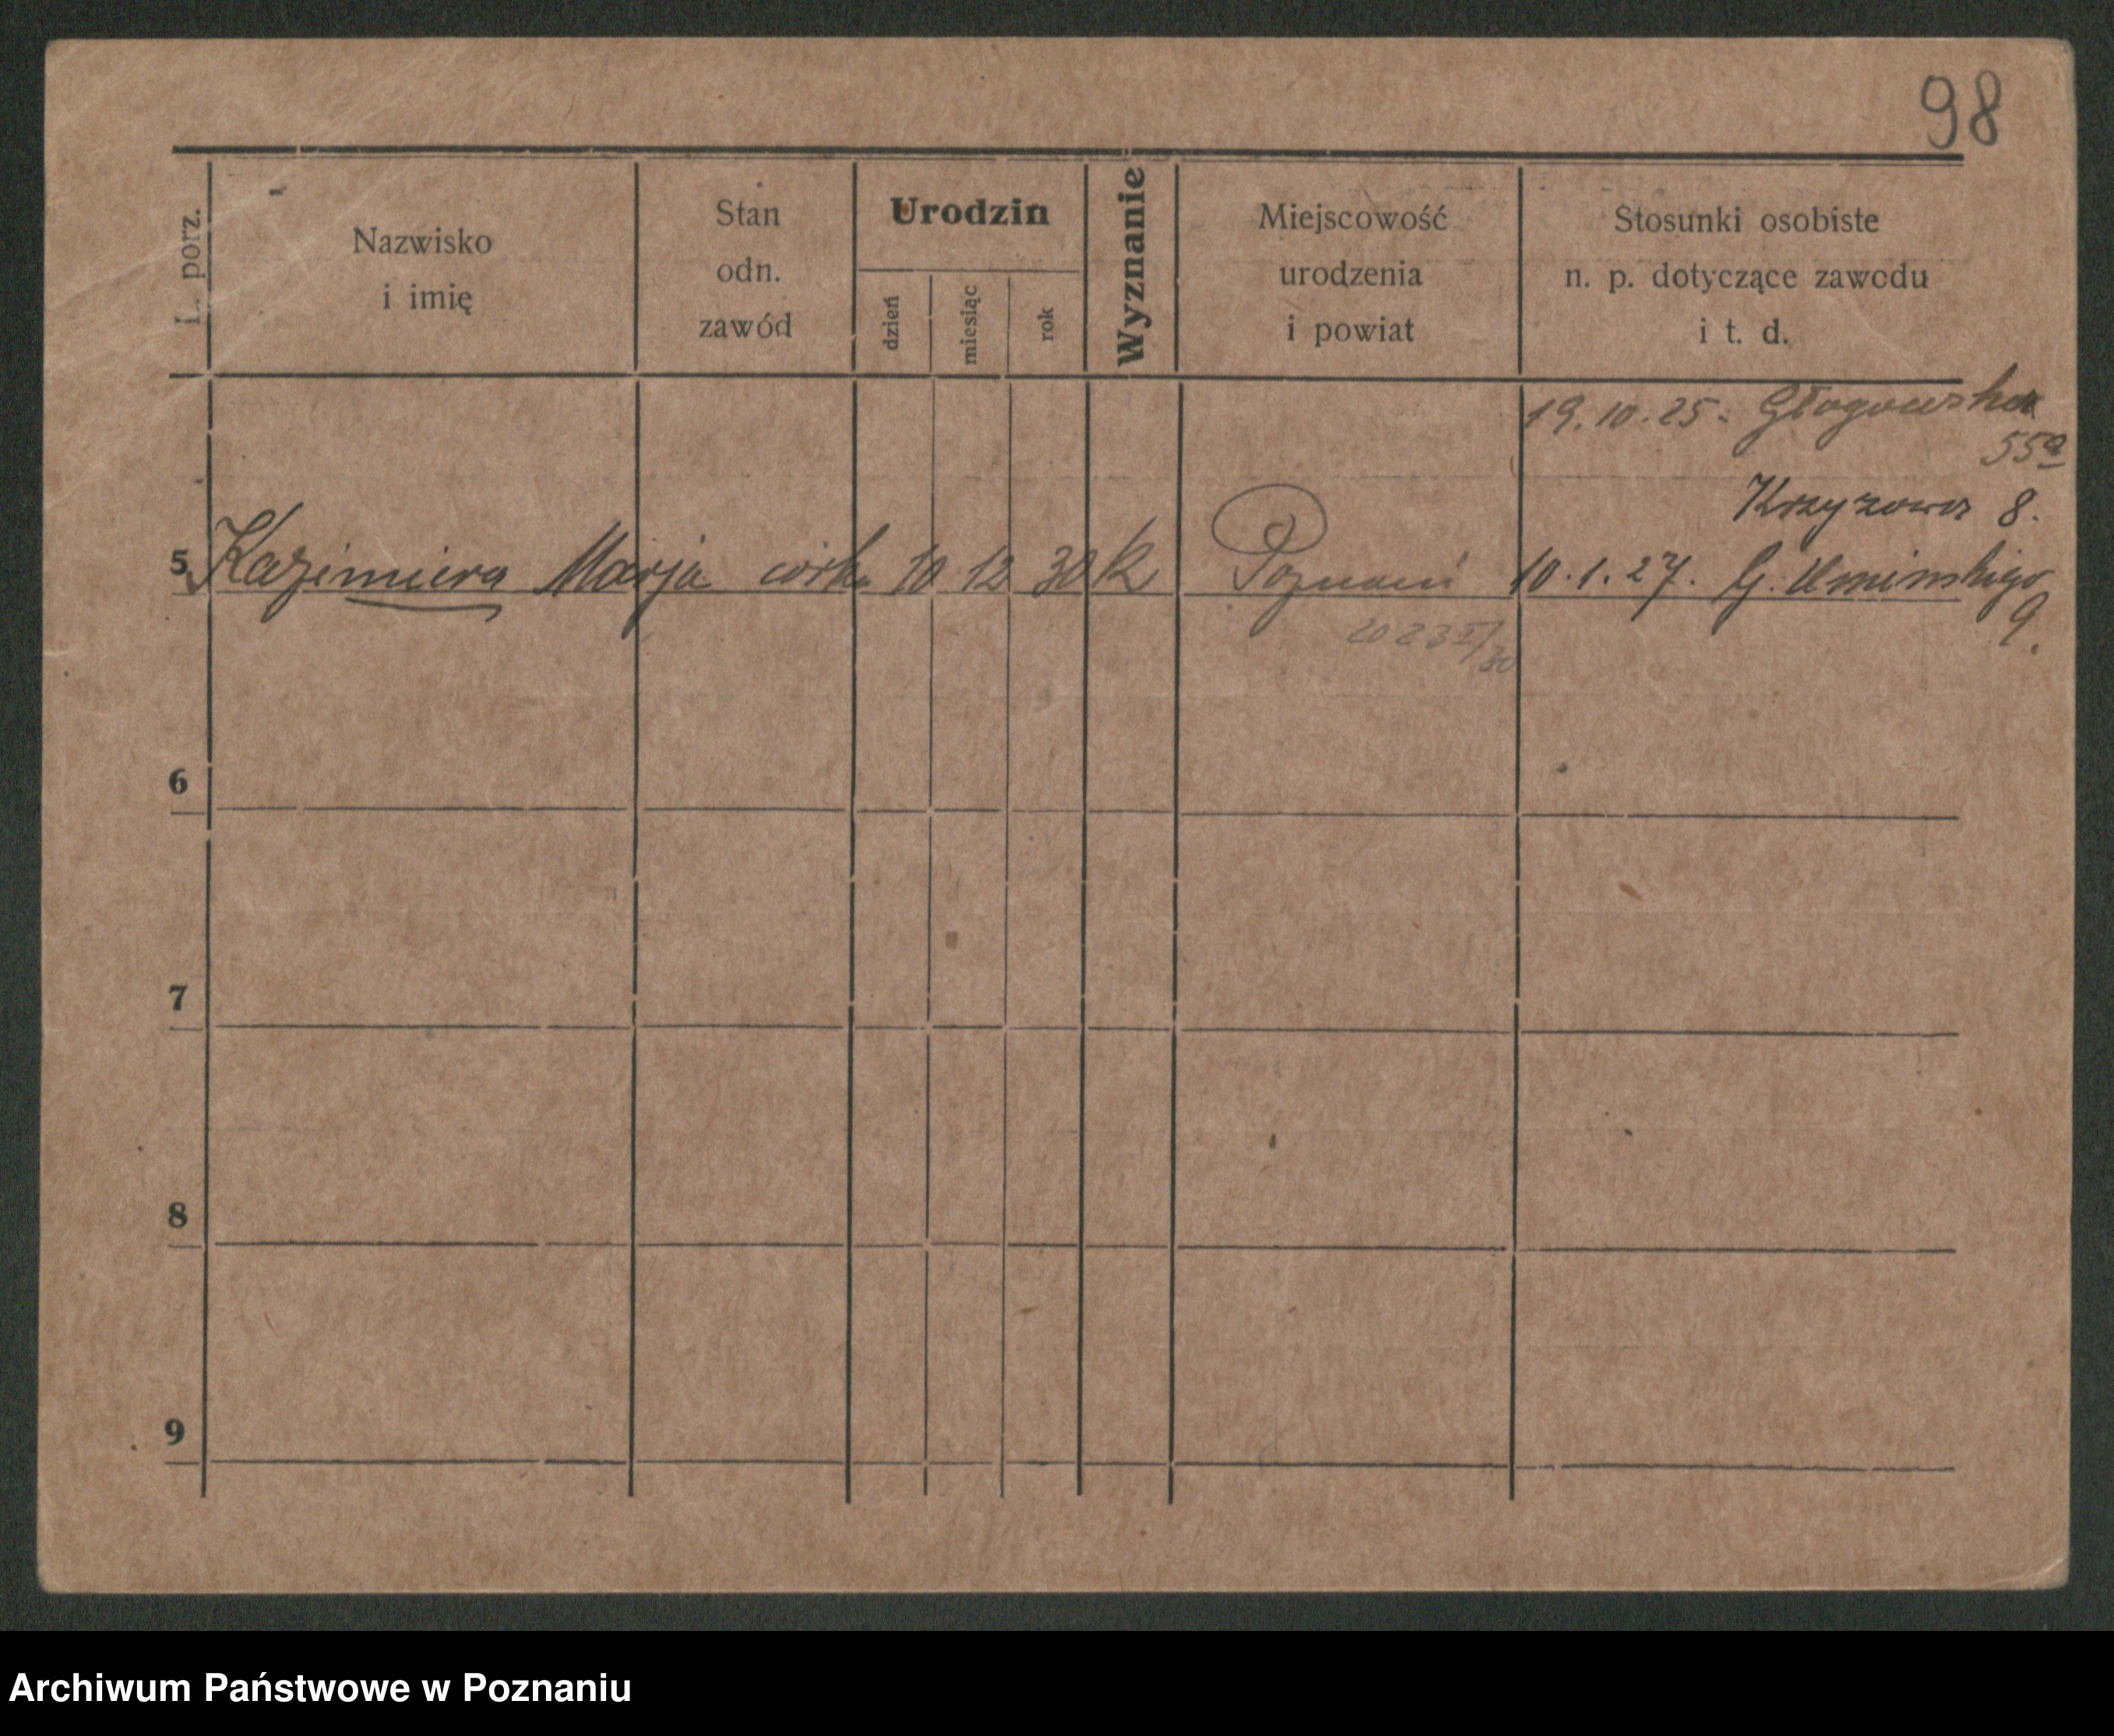 98
L. porz.
Nazwisko
i imię
Stan
odn.
zawód
Urodzin
dzień
miesiąc
rok
Wyznanie
Miejscowość
urodzenia
i powiat
Stosunki osobiste
n. p. dotyczące zawodu
i t. d.
19.10.25. Głogowska
55a
Krzyżowa 8.
5 Kazimiera Marja córka 10 12 30 k Poznań 10.1.27. G. Umińskiego
9.
6
7
8
9
Archiwum Państwowe w Poznaniu